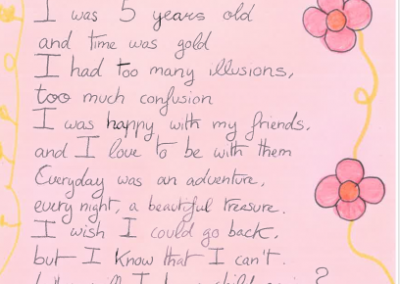 I was 5 years old
and time was gold
I had too many illusions,
too much confusion
I was happy with my friends,
and I love to be with them
Everyday was an adventure,
every night, a beautiful treasure.
I wish I could go back,
but I know that I can't.